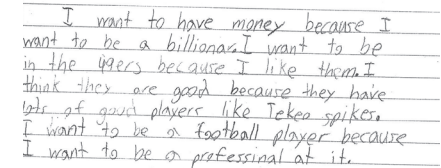 I want to have money because I
want to be a billionar. I want to be
in the 49ers because I like them. I
think they are good because they have
lots of good players like Tekeo spikes.
I want to be a football player because
I want to be a professinal at it.